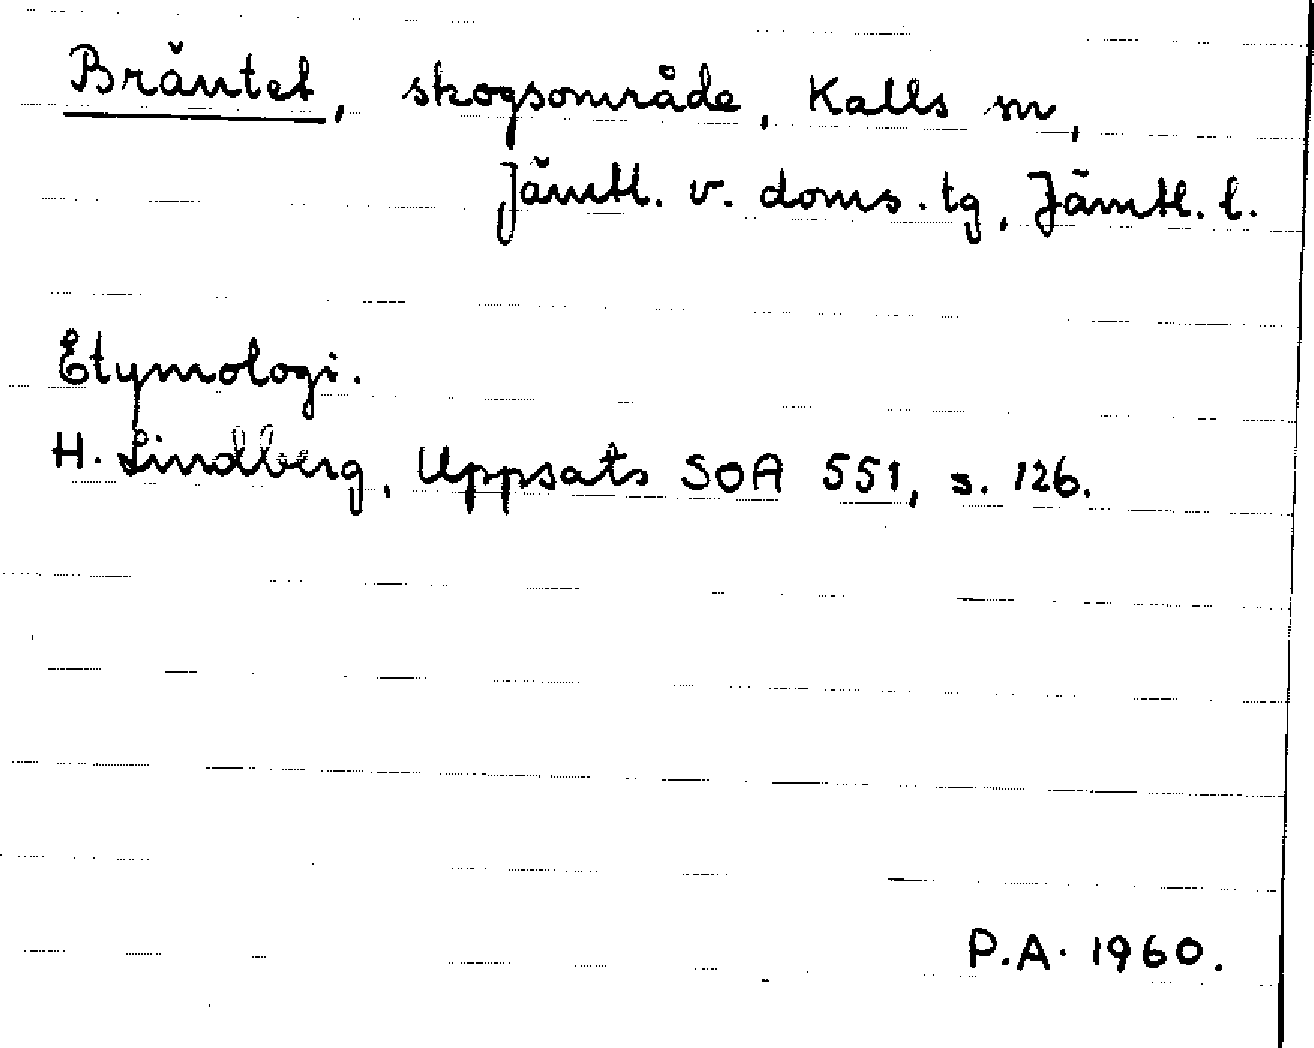 Bräntet, skogsområde, Kalls sn,
Jämtl. v. doms. tg, Jämtl. l.
Etymologi.
H. Lindberg, Uppsats SOA 551, s. 126.
P.A. 1960.